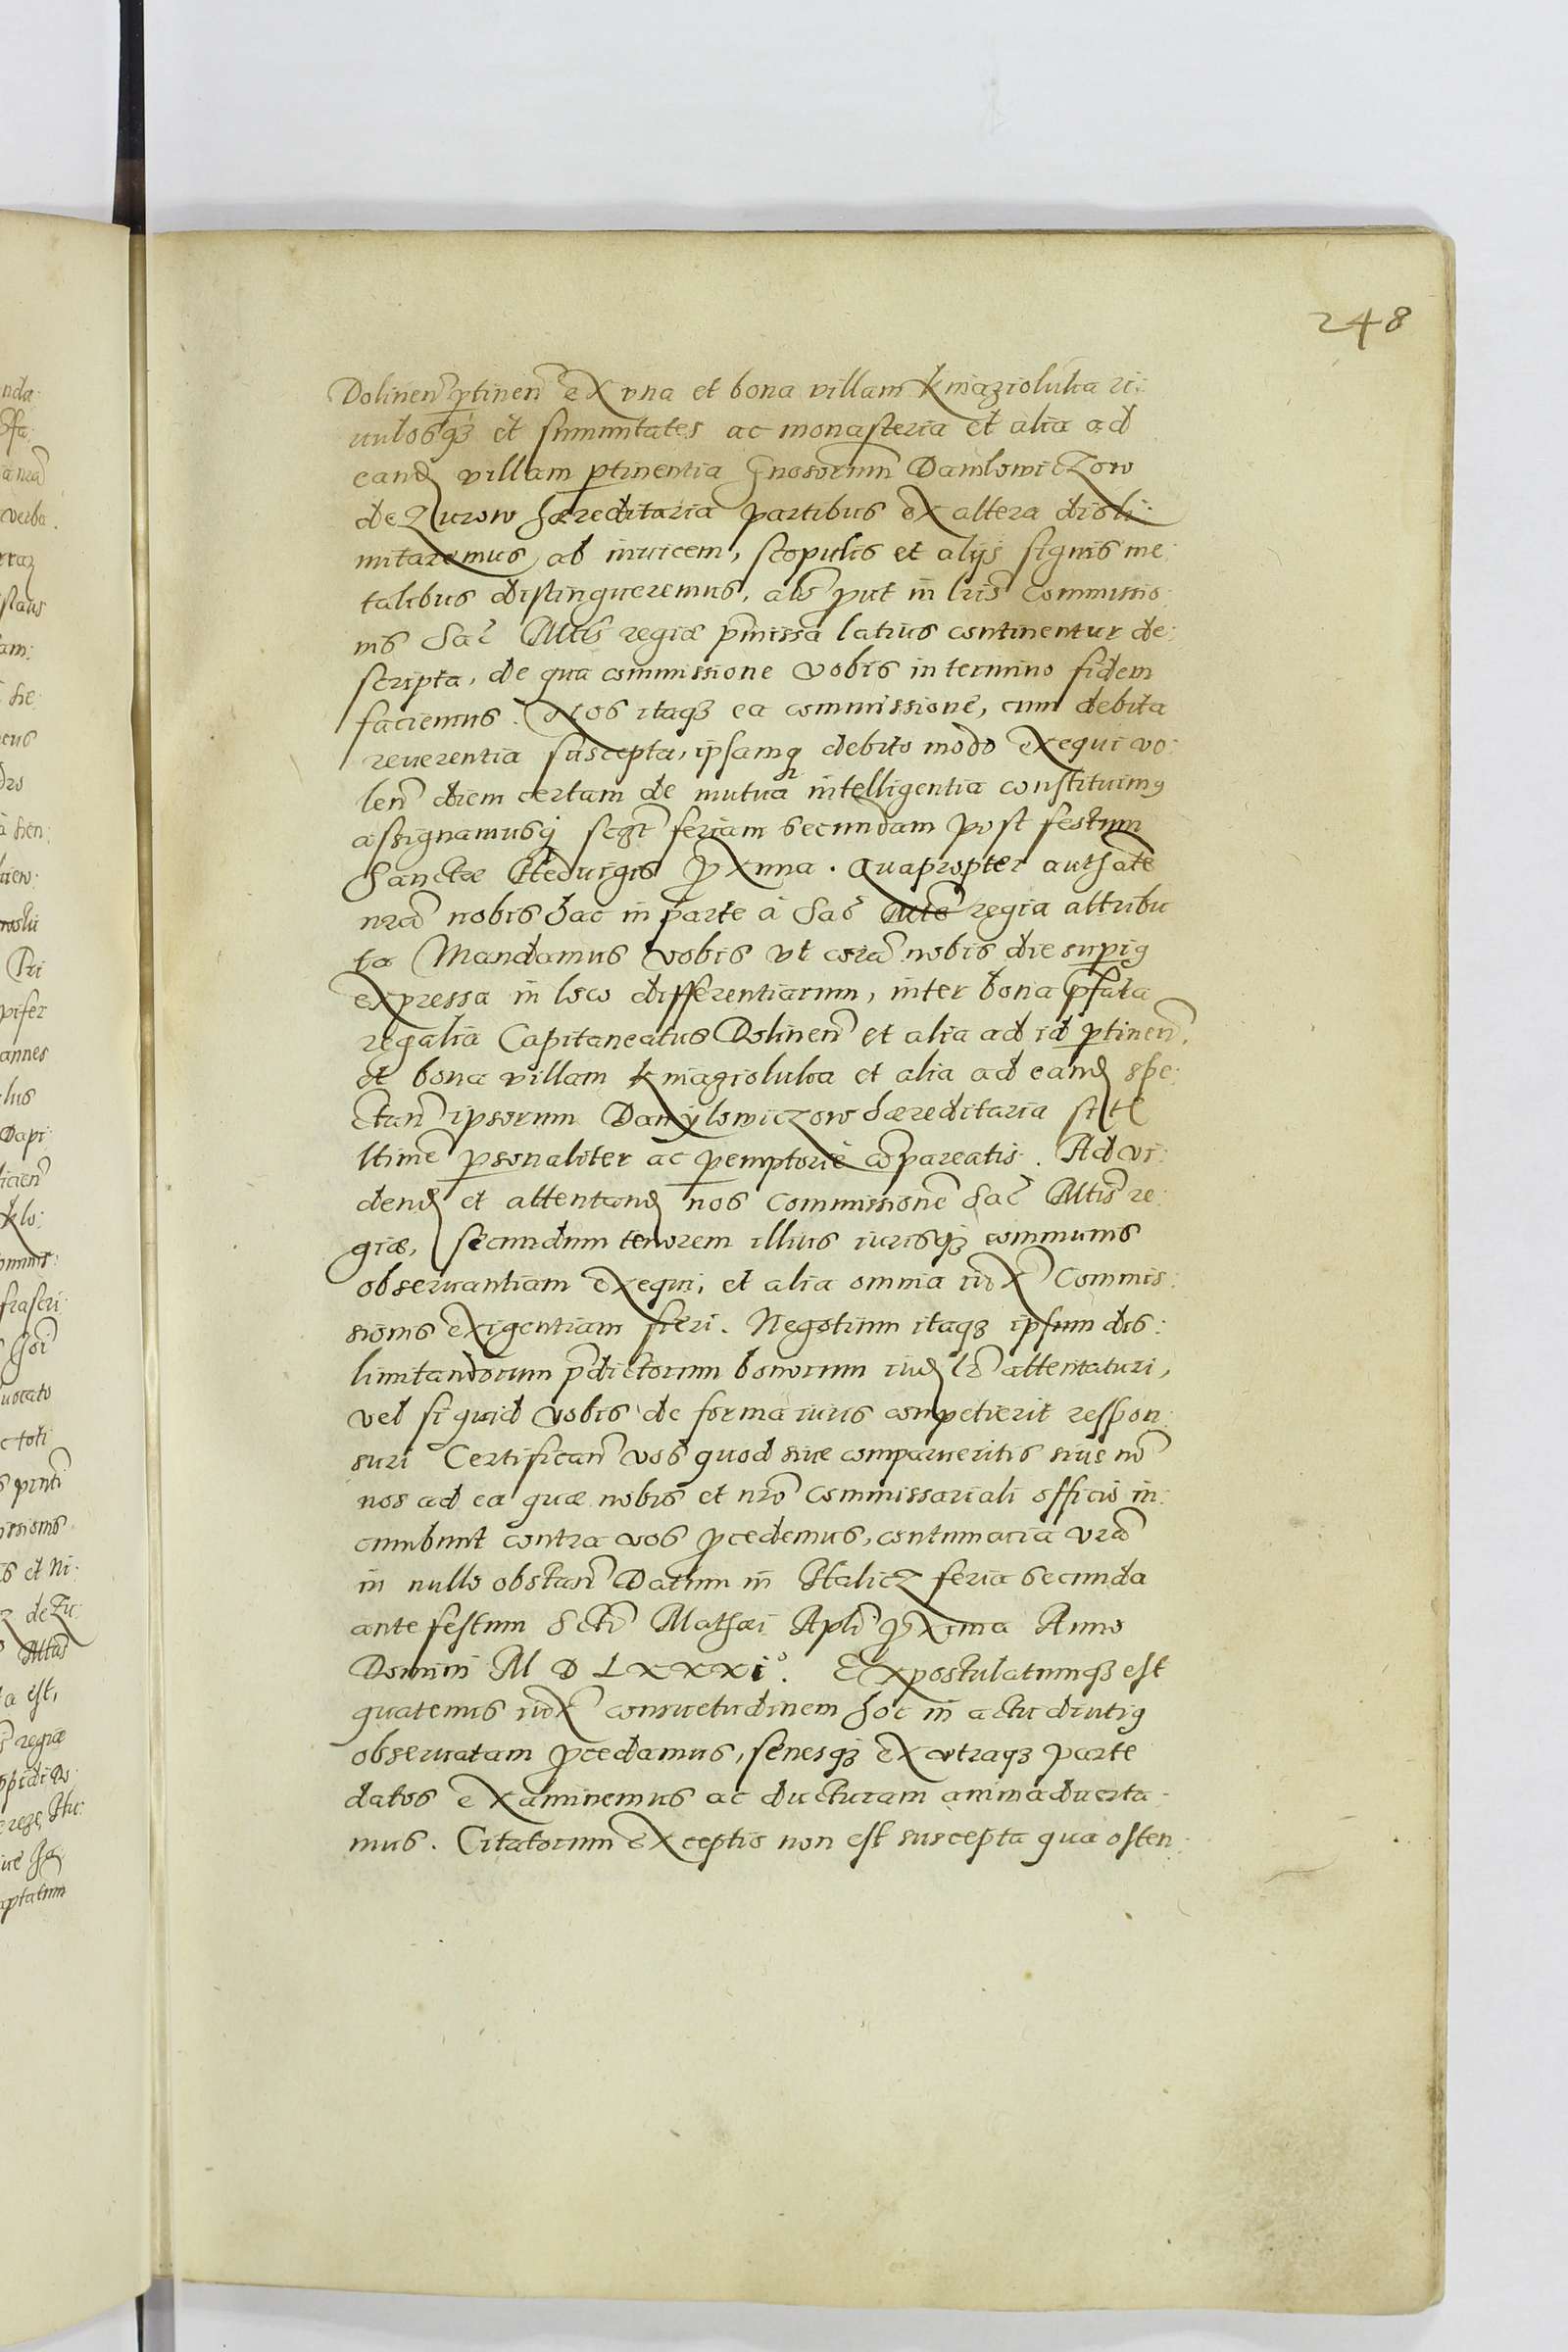 248
Dolineñ ptineñ ex vna et bona villam Kniazioluka ri:
uulosq3 et summitates ac monasteria et alia ad
eand villam ptinentia Gnosorum Danilowiczow
de Zurow hæreditaria partibus ex altera disli:
mitaremus ab inuicem, scopulis et alijs signis me:
talibus distingueremus, als put in lris Commissio:
nis Sac Mtis regiæ pmissa latius continentur de:
scripta, de qua commissione vobis in termino fidem
faciemus. Nos itaq3 ea commissione, cum debita
reuerentia suscepta, ipsamq debito modo exequi vo:
leñ diem certam de mutua intelligentia constituimus
assignamusq feriam secundam post festum
Sanctæ Heduigis pxima. Quapropter authate
nra nobis hac in parte à Sac Mte regia attribu
ta Mandamus vobis vt cora nobis die supius
expressa in loco differentiarum, inter bona pfata
regalia Capitaneatus Dolineñ et alia ad id ptineñ.
et bona villam Kniazioluka et alia ad eand spe:
ctañ ipsorum Danylowiczow hæreditaria
ltime psonaliter ac pemptorie compareatis. Ad vi:
dend et attentand nos Commissione Sac Mtis re:
giæ, secundum tenorem illius iurisq3 communis
obseruantiam exequi, et alia omnia iux Commis:
sionis exigentiam fieri. Negotium itaq3 ipsum dis:
limitandorum pdictorum bonorum attentaturi,
vel si quid vobis de forma iuris competierit respon:
suri Certificañ vos quod siue comparueritis siue no
nos ad ea quæ nobis et nro Commissariali officio in:
cumbunt contra vos pcedemus, contumacia vra
in nullo obstañ Datum in Halicz feria secunda
ante festum Scti Mathæi Apli pxima Anno
Domini M D LXXXi°. Expostulatumq3 est
quatenus iux consuetudinem hoc in actu diutius
obseruatam pcedamus, senesq3 ex vtraq3 parte
datos examinemus ac ducturam animaduerta:
mus. Citatorum exceptio non est suscepta qua osten: